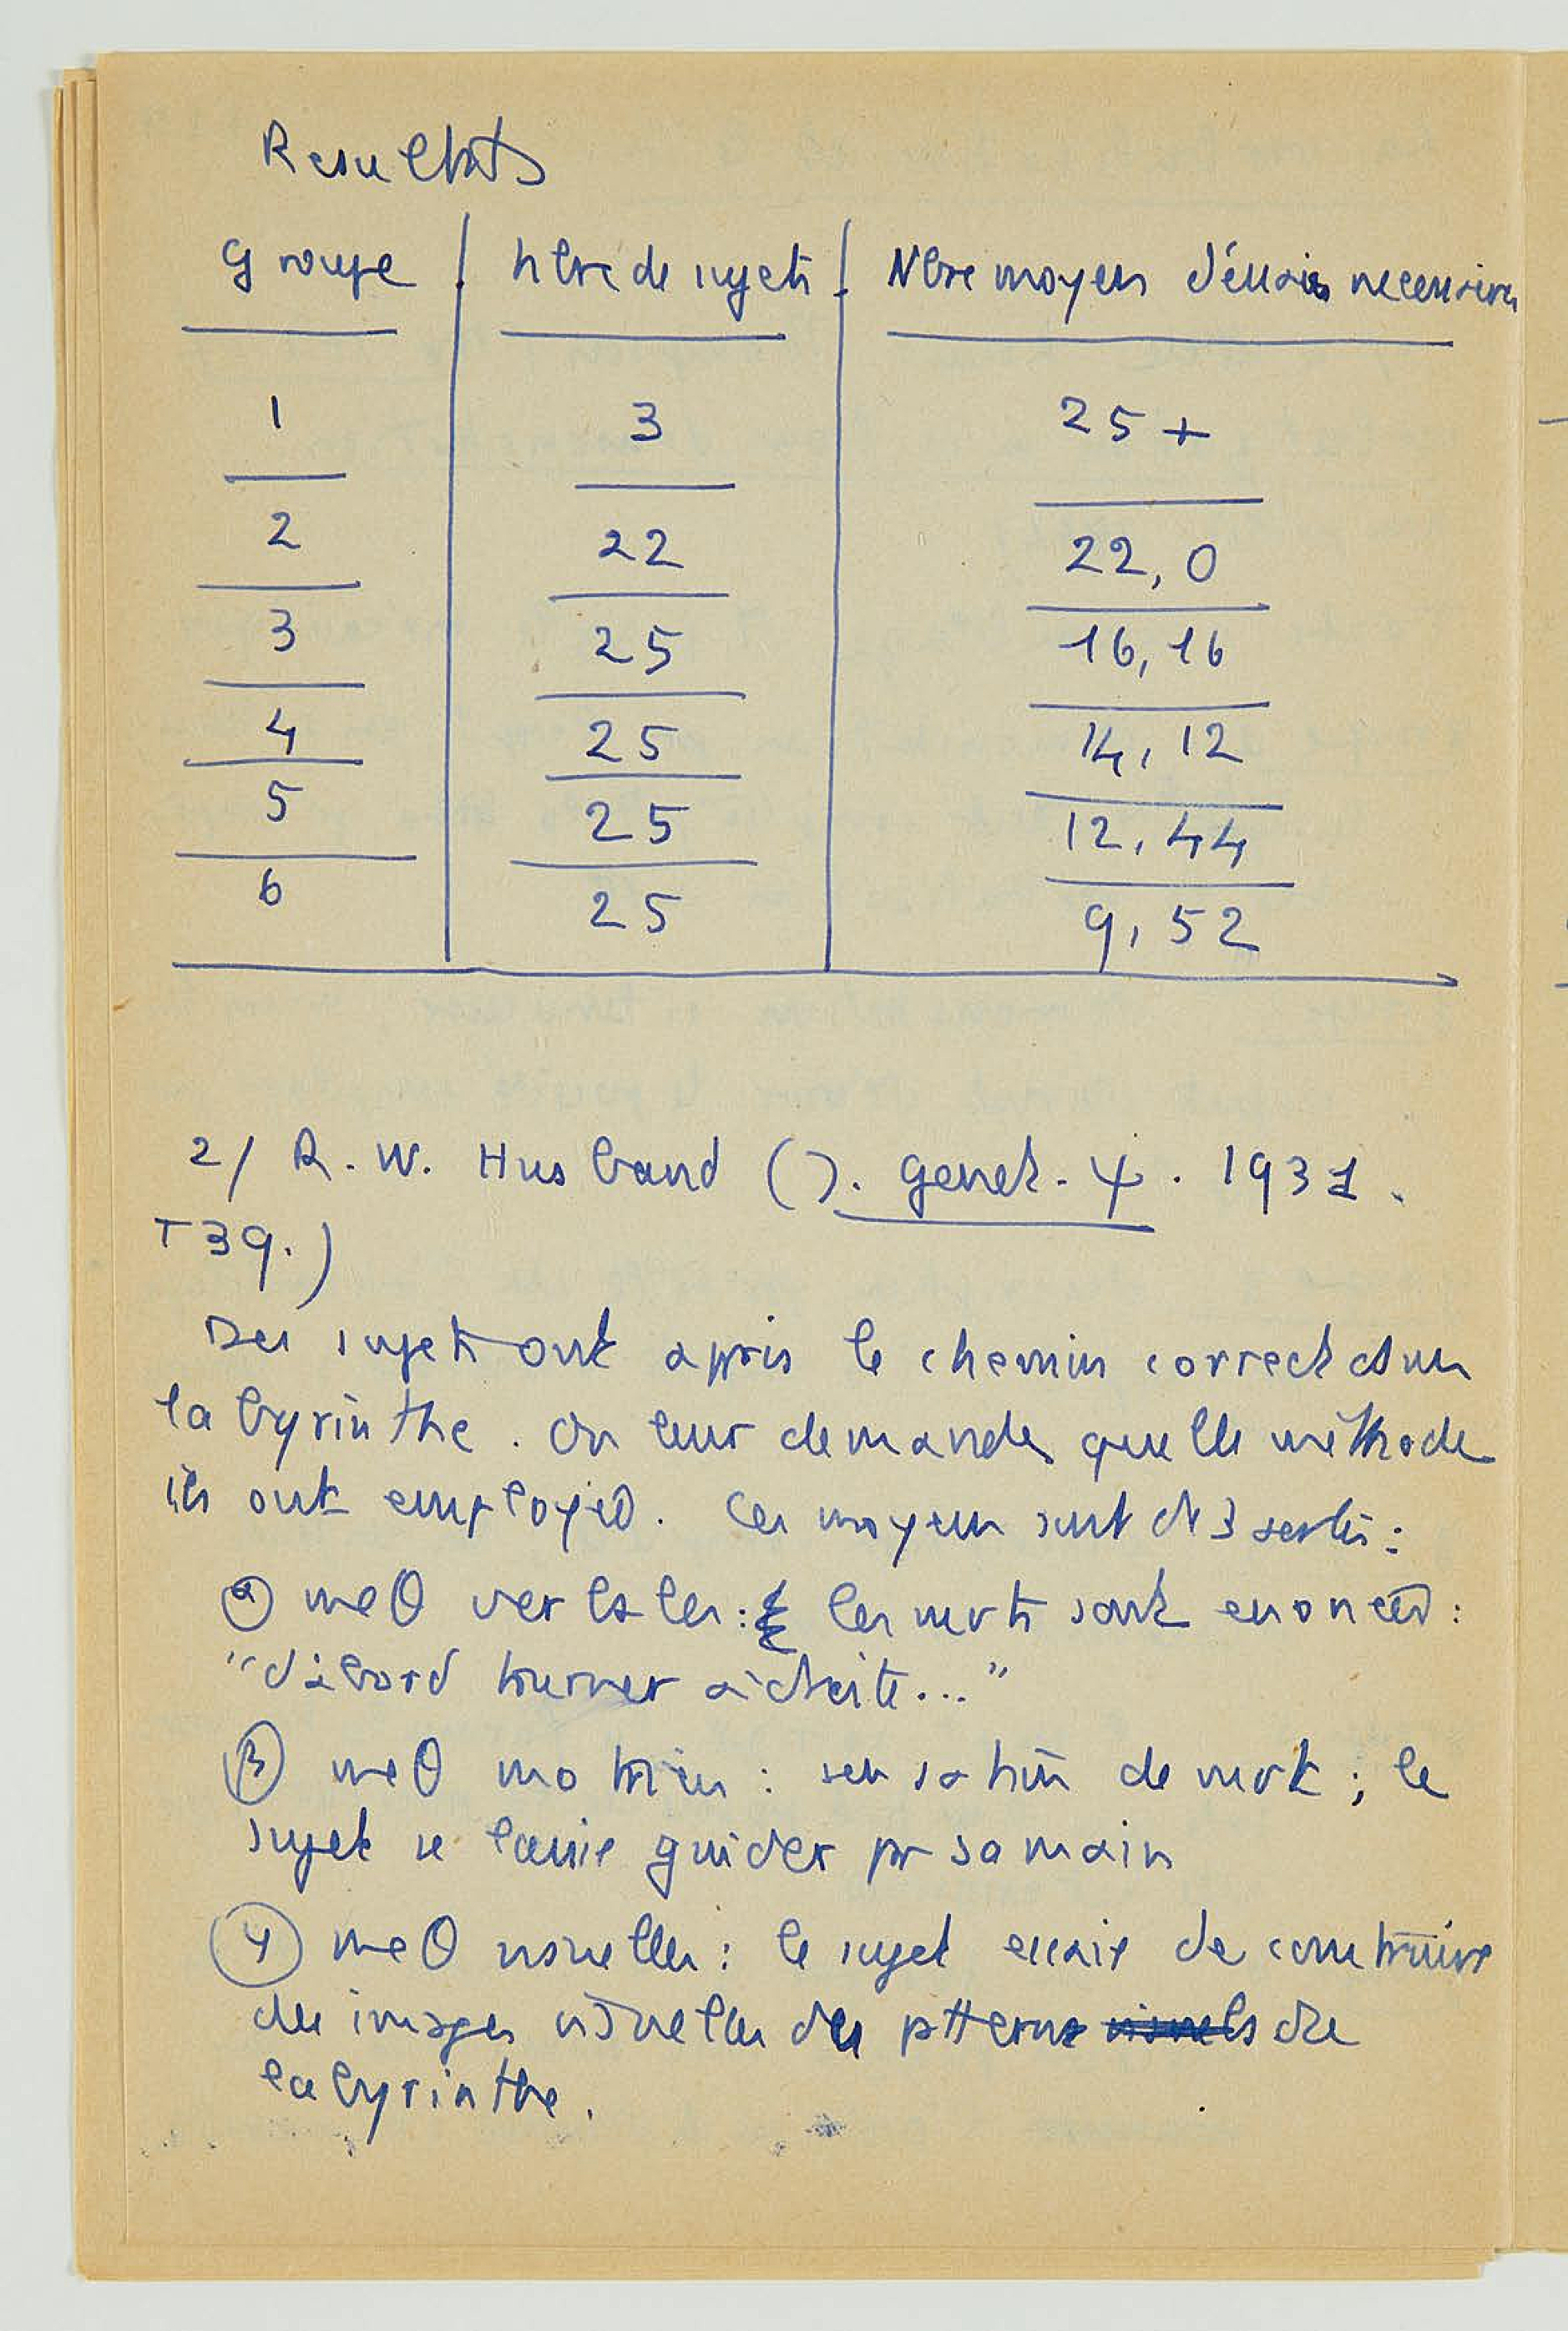 Resultats
Groupe | Nbre de sujets | Nbre moyen d'essais necessaires
1 | 3 | 25 +
2 | 22 | 22,0
3 | 25 | 16,16
4 | 25 | 14,12
5 | 25 | 12,44
6 | 25 | 9,52
2/ R. W. Husband (J. genet. ψ. 1931.
T 39.)
Des sujets ont appris le chemin correct d'un
labyrinthe. On leur demande quelle méthode
ils ont employée. Ces moyens sont de 3 sortes :
α meθ verbales : les mvts sont enoncés :
"d'abord tourner à droite..."
β meθ motrices : sensation de mvt ; le
sujet se laisse guider pr sa main
γ meθ visuelles : le sujet essaie de construire
des images visuelles des ptterns visuels du
labyrinthe.